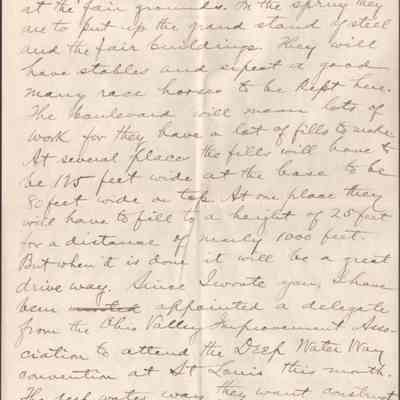 at the fair grounds. In the spring they
are to put up the grand stand of steel
and the fair buildings. They will
have stables and expect a good
many race horses to be kept here.
The boulevard will mean lots of
work for they have a lot of fills to make
At several places the fills will have to
be 115 feet wide at the base to be
80 feet wide on top. At one place they
will have to fill to a height of 25 feet
for a distance of nearly 1000 feet.
But when it is done it will be a great
drive way. Since I wrote you, I have
been appointed a delegate
from the Ohio Valley Improvement Asso-
ciation to attend the Deep Water Way
convention at St Louis this month.
The deep water way they want construct